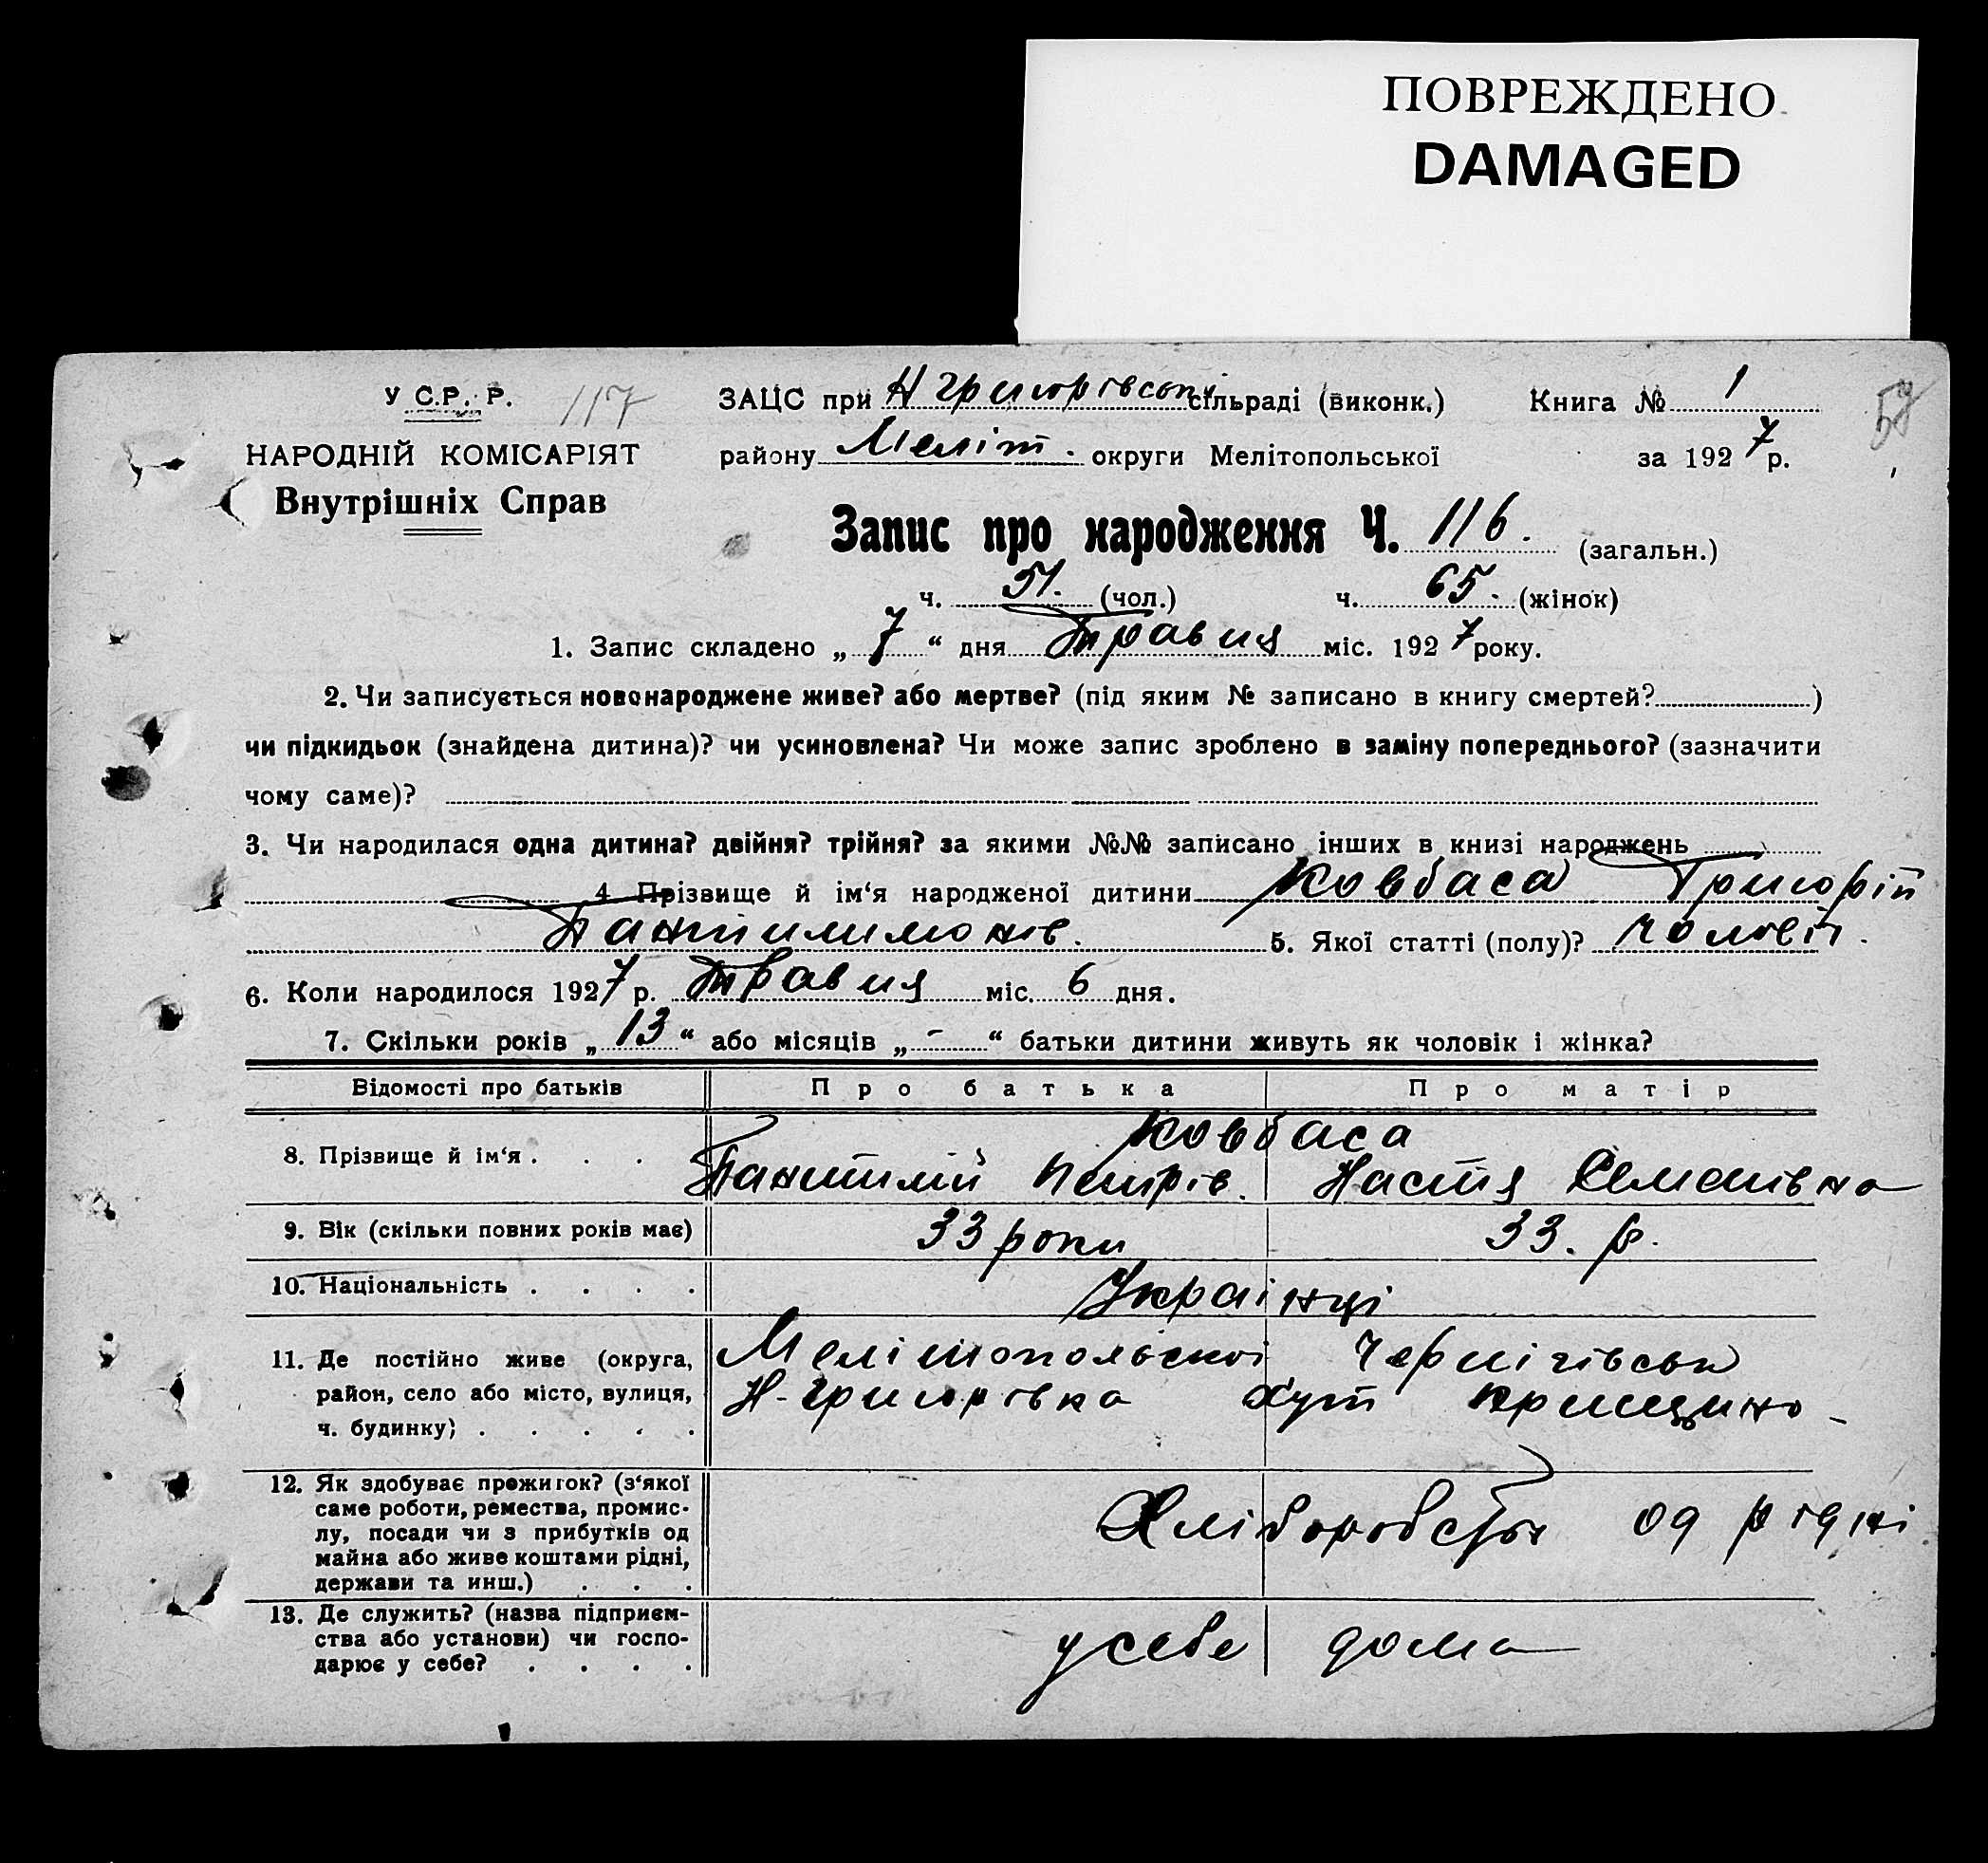 ПОВРЕЖДЕНО
DAMAGED
У С.Р.Р. 117 ЗАЦС при Н григорівській сільраді (виконк.) Книга № 1 59
НАРОДНІЙ КОМІСАРІЯТ району Меліт. округи Мелітопольської за 1927 р.
Внутрішніх Справ
Запис про народження Ч. 116. (загальн.)
ч. 51. (чол.) ч. 65. (жінок)
1. Запис складено „7“ дня Травня міс. 1927 року.
2. Чи записується новонароджене живе? або мертве? (під яким № записано в книгу смертей? )
чи підкидьок (знайдена дитина)? чи усиновлена? Чи може запис зроблено в заміну попереднього? (зазначити
чому саме)?
3. Чи народилася одна дитина? двійня? трійня? за якими №№ записано інших в книзі народжень
4. Прізвище й ім‘я народженої дитини Ковбаса Григорій
Пантилимонів. 5. Якої статті (полу)? чоловіч.
6. Коли народилося 1927 р. Травня міс. 6 дня.
7. Скільки років „13“ або місяців „-“ батьки дитини живуть як чоловік і жінка?
Відомості про батьків Про батька Про матір
Ковбаса
8. Прізвище й ім‘я . . . Пантилій Петрів. Настя Семенівна
9. Вік (скільки повних років має) 33 роки 33. р.
10. Національність . . . . Українці
11. Де постійно живе (округа, Мелітопольської Чернігівськ
район, село або місто, вулиця, Н-григорівка Хут
ч. будинку) . . . . .
12. Як здобуває прожиток? (з‘якої
саме роботи, ремества, промис-
лу, посади чи з прибутків од Хліборобство од рідні
майна або живе коштами рідні,
держави та инш.) . . .
13. Де служить? (назва підприєм-
ства або установи) чи госпо- у себе дома
дарює у себе? . . . .